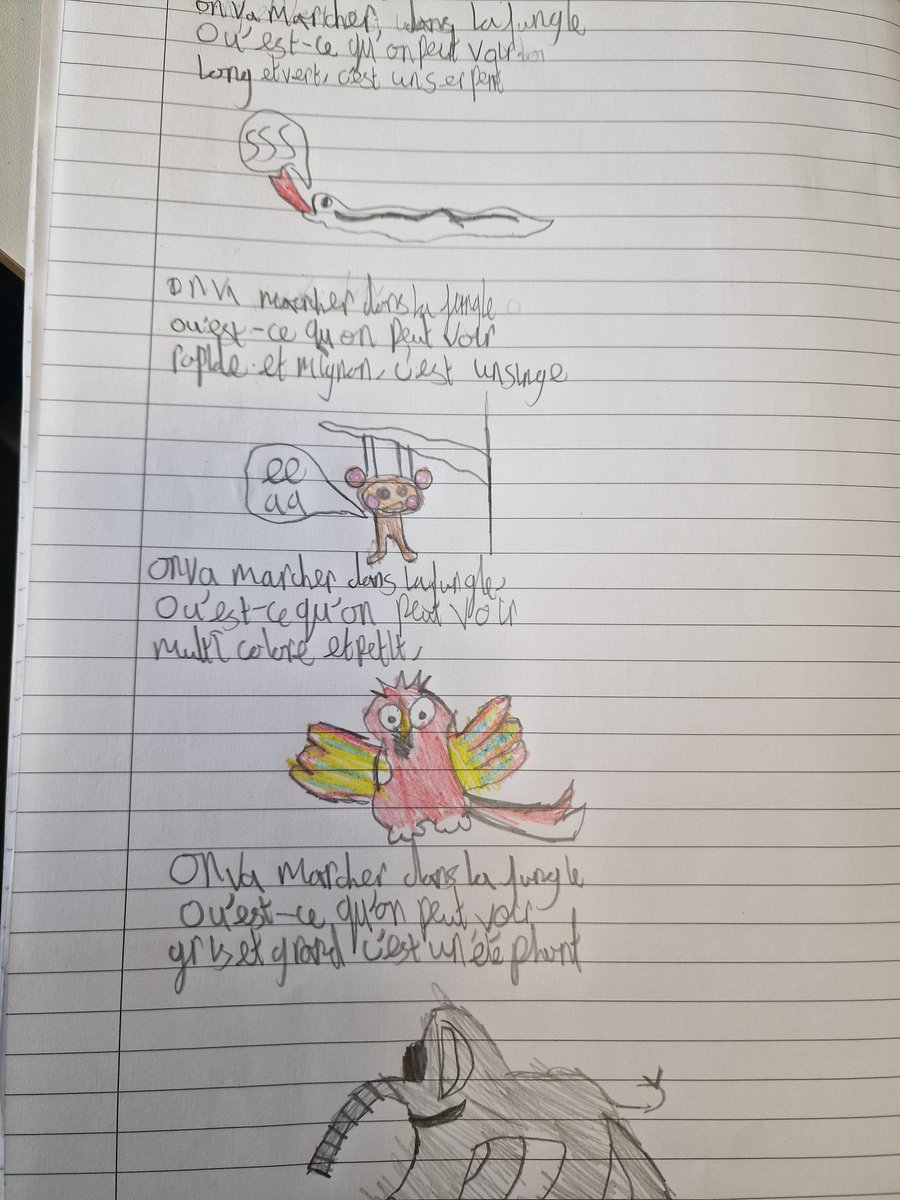 on va marcher, dans la jungle
Ou'est-ce qu'on peut voir
long et vert, c'est un serpent
SSS
on va marcher dans la jungle
ou'est-ce qu on peut voir
rapide et mignon, c'est un singe
ee
aa
on va marcher dans la jungle,
Ou'est-ce qu'on peut voir
multi colore et petit,
on va marcher dans la jungle
Ou'est-ce qu'on peut voir
gris et grand c'est un éléphant